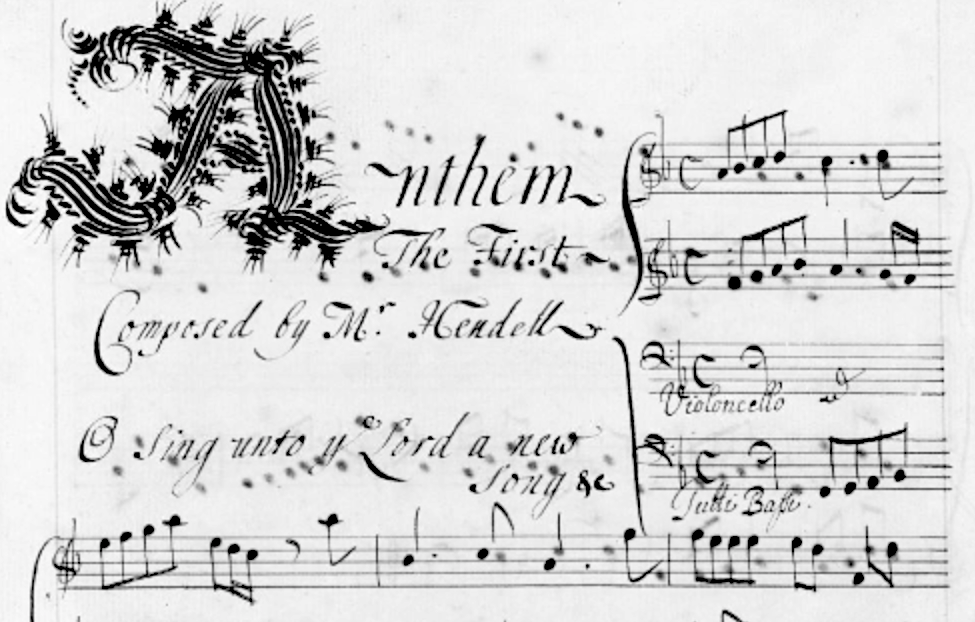 Anthem
The First
Composed by Mr. Hendell
O Sing unto ye Lord a new
Song &c
Violoncello
Tutti Baſsi.